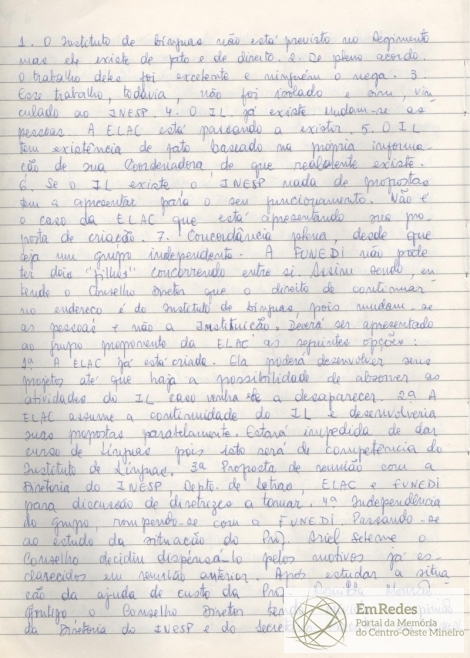 1. O Instituto de Línguas não está previsto no Regimento
mas ele existe de fato e de direito. 2. De pleno acordo.
O trabalho deles foi excelente e ninguém o nega. 3.
Esse trabalho, todavia, não foi isolado e sim, vin
culado ao INESP. 4. O IL já existe mudam-se as
pessoas. A ELAC está passando a existir. 5. O IL
tem existência de fato baseado na própria informa
ção de sua Coordenadora, de que realmente existe.
6. Se o IL existe, o INESP nada de propostas
tem a apresentar para o seu funcionamento. Não é
o caso da ELAC que está apresentando sua pro
posta de criação. 7. Concordância plena, desde que
seja um grupo independente. A FUNEDI não pode
ter dois "filhos" concorrendo entre si. Assim sendo, en
tende o Conselho Diretor que o direito de continuar
no endereço é do Instituto de Línguas, pois mudam-se
as pessoas e não a Instituição. Deverá ser apresentado
ao grupo proponente da ELAC as seguintes opções:
1ª A ELAC já está criada. Ela poderá desenvolver seus
projetos até que haja a possibilidade de absorver as
atividades do IL caso venha este a desaparecer. 2ª A
ELAC assume a continuidade do IL e desenvolveria
suas propostas paralelamente. Estará impedida de dar
curso de Línguas pois isto será de competência do
Instituto de Línguas. 3ª Proposta de reunião com a
Diretoria do INESP Depto. de Letras, ELAC e FUNEDI
para discussão de diretrizes a tomar. 4ª Independência
do grupo, rompendo-se com a FUNEDI. Passando-se
ao estudo da situação do Prof. Ariel Seleme o
Conselho decidiu dispensá-lo pelos motivos já es
clarecidos em reunião anterior. Após estudar a situa
ção da ajuda de custo da Prof.
o Conselho Diretor
da Diretoria do INESP e do
EmRedes
Portal da Memória
do Centro-Oeste Mineiro